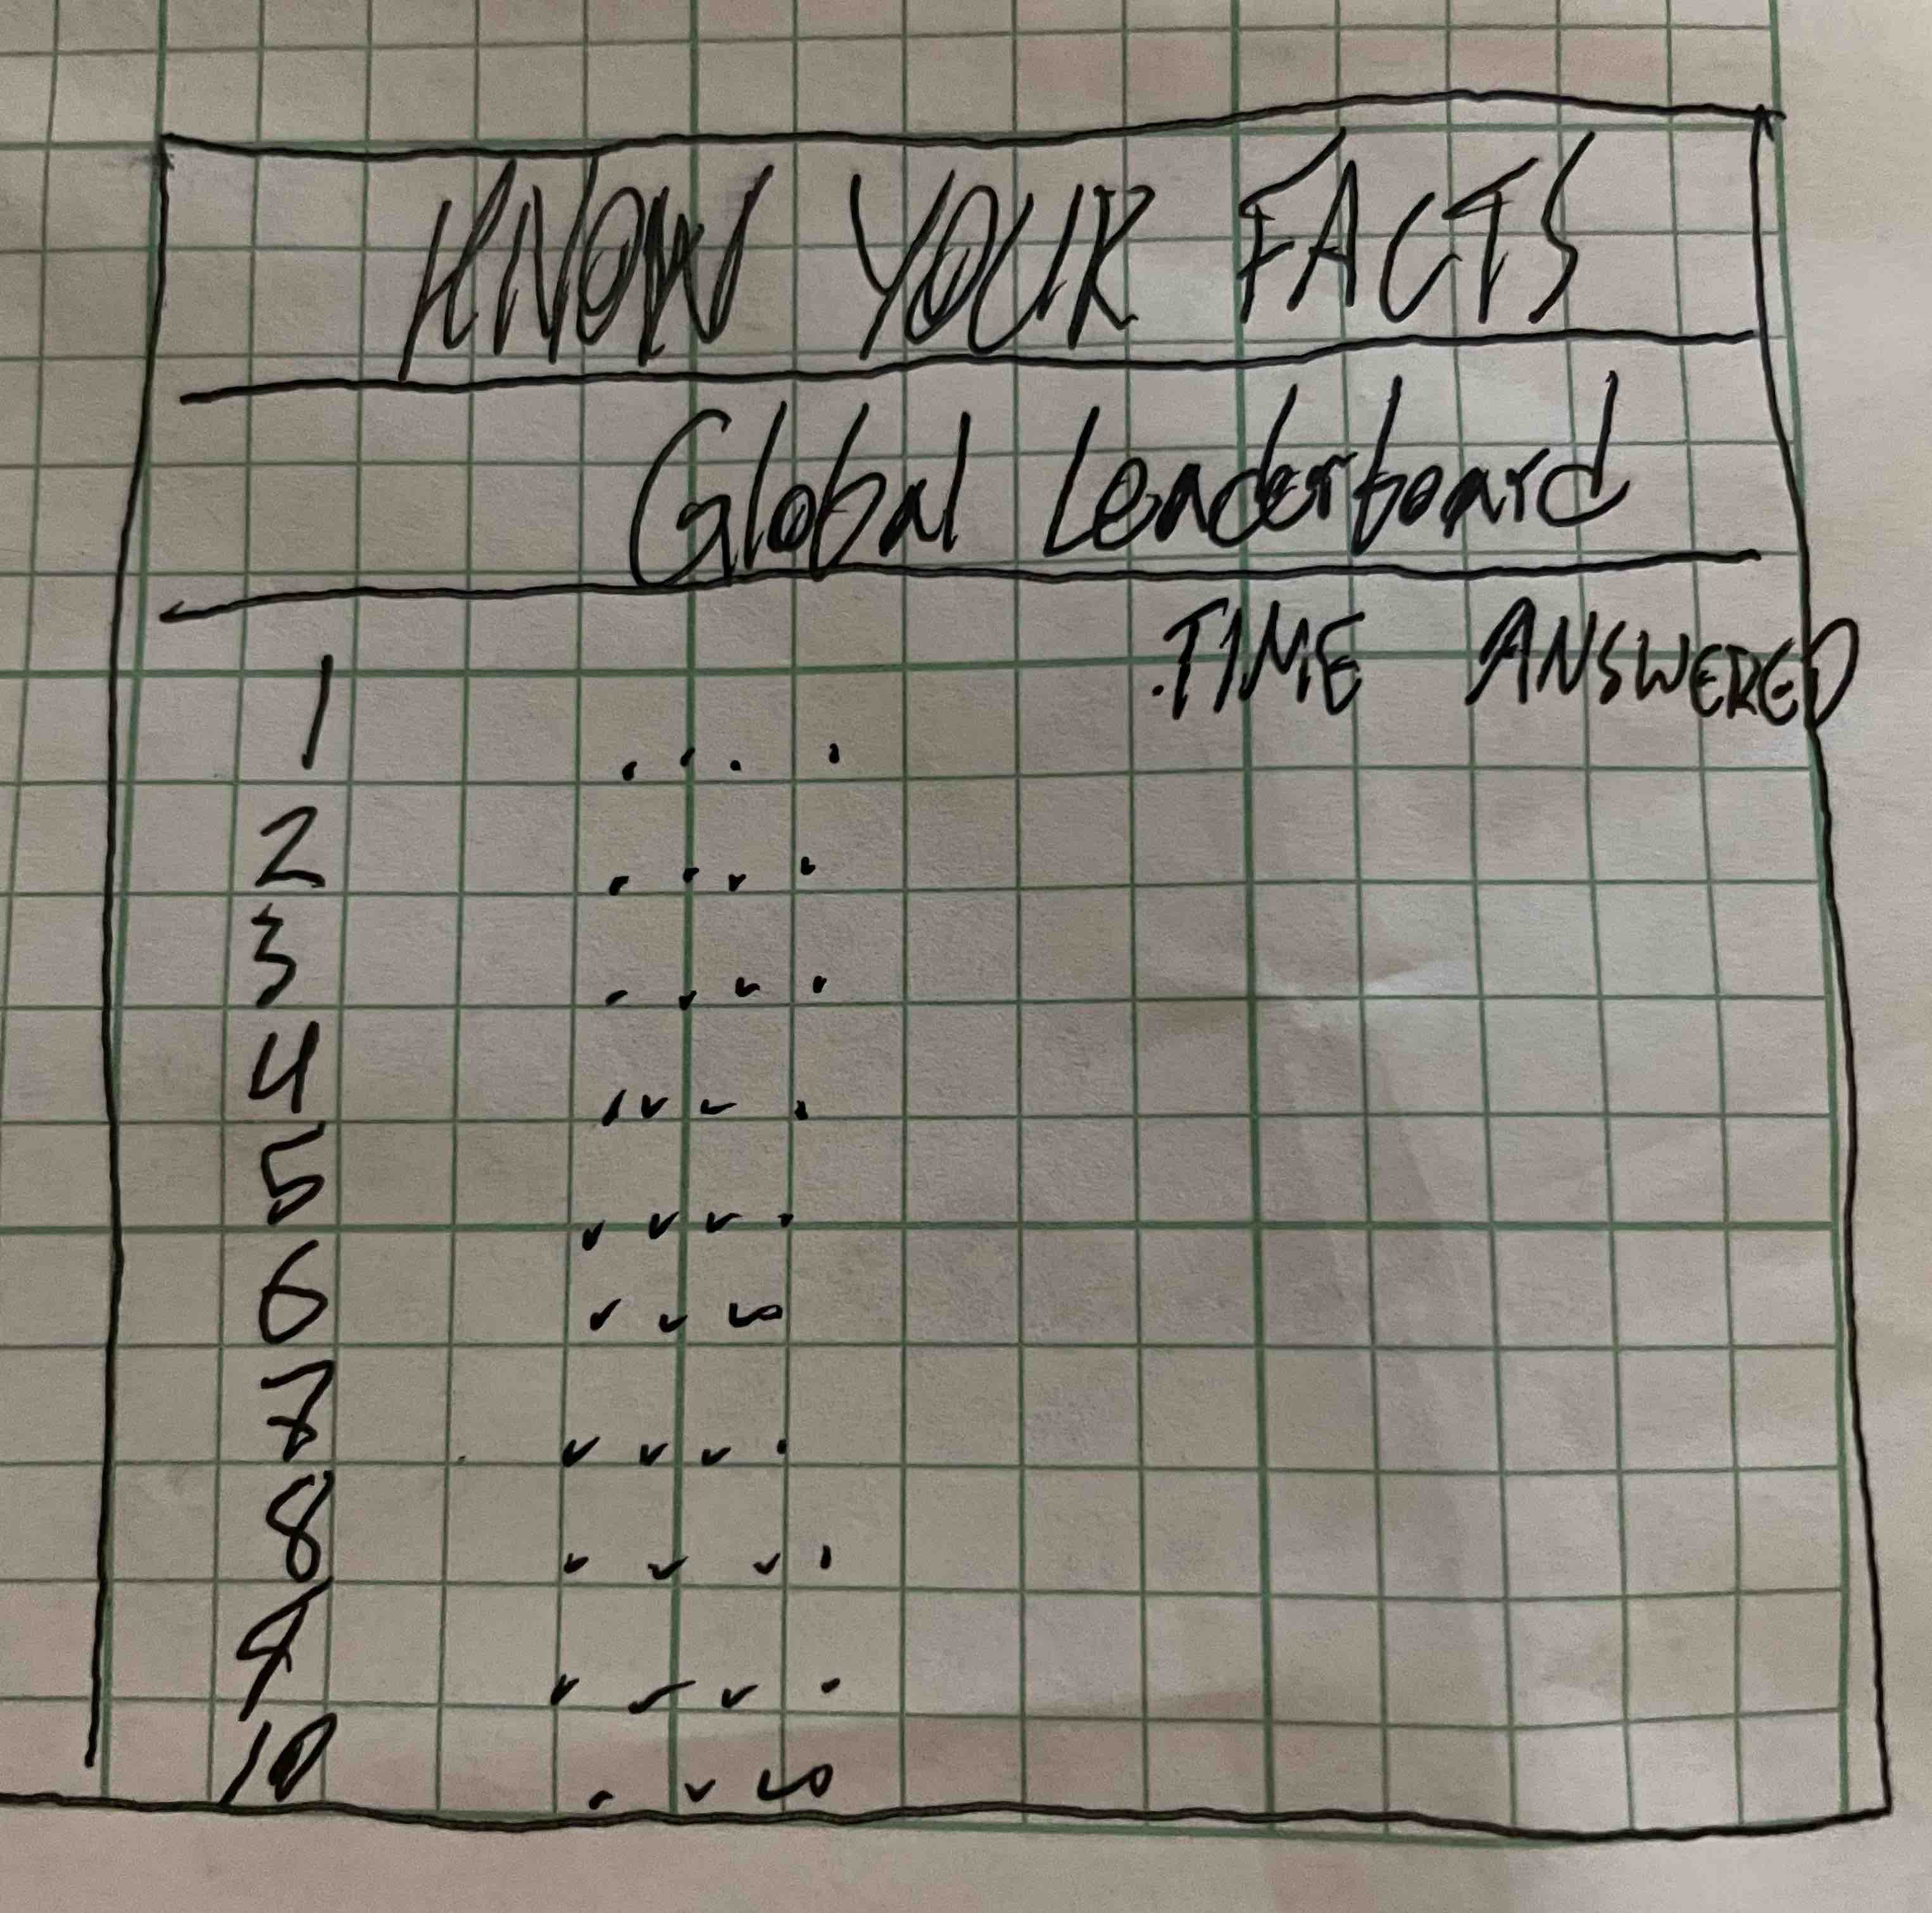 KNOW YOUR FACTS
Global Leaderboard
TIME ANSWERED
1 . . . .
2 . . . .
3 . . . .
4 . . . .
5 . . . .
6 . . . .
7 . . . .
8 . . . .
9 . . . .
10 . . . .